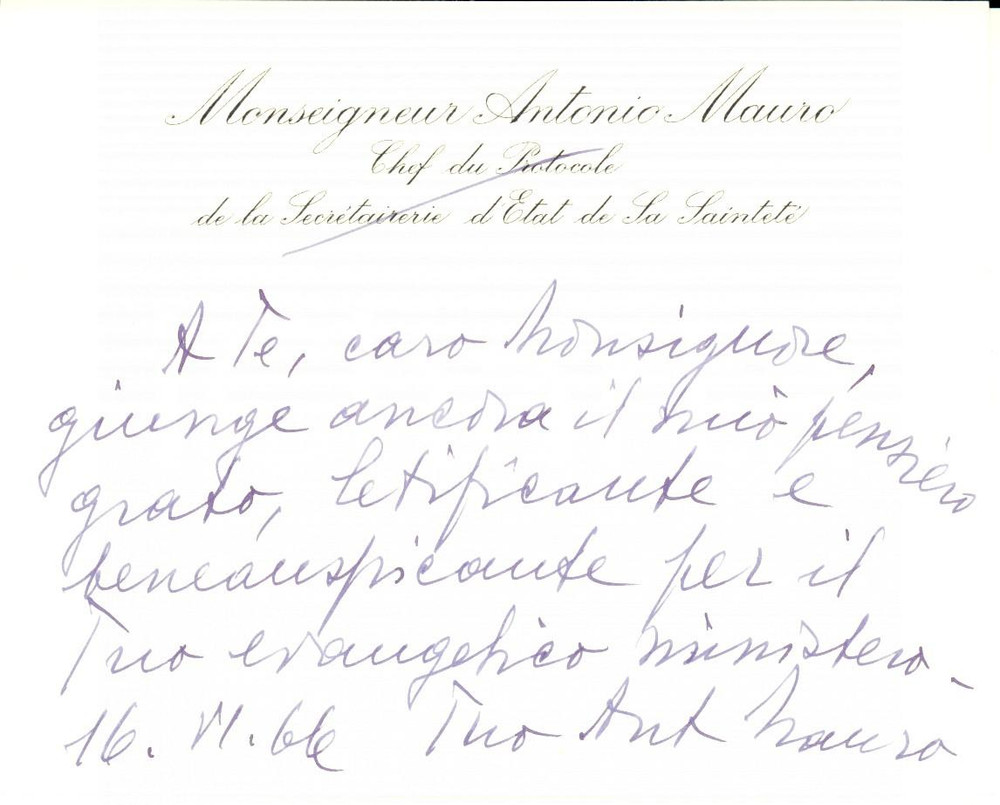 Monseigneur Antonio Mauro
Chef du Protocole
de la Secrétairerie d'Etat de Sa Sainteté
A Te, caro Monsignore,
giunge ancora il mio pensiero
grato, letificante e
beneauspicante per il
Tuo evangelico ministero -
16. VI. 66 Tuo Ant Mauro